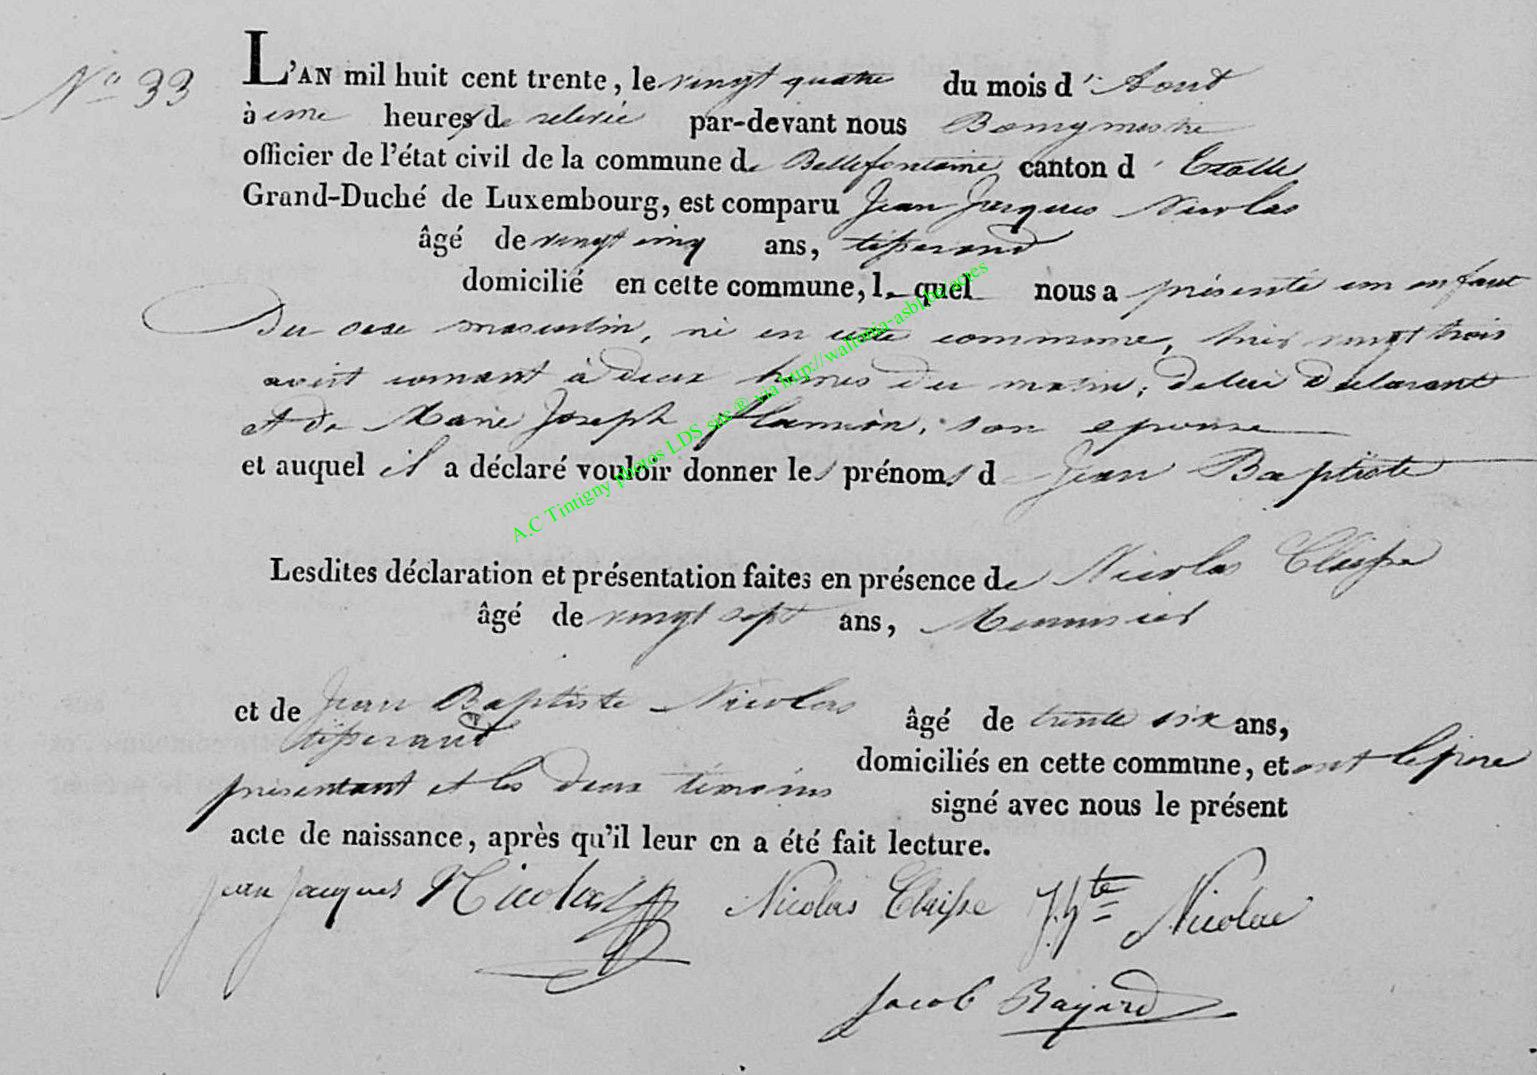 N° 33
L'AN mil huit cent trente, le vingt quatre du mois d'Aout
à une heure de relevée par-devant nous Bourgmestre
officier de l'état civil de la commune de Bellefontaine canton d'Etalle
Grand-Duché de Luxembourg, est comparu Jean Jacques Nicolas
âgé de vingt cinq ans, tisserand
domicilié en cette commune, lequel nous a présenté un enfant
Du sexe masculin, né en cette commune, hier vingt trois
aout courant à deux heures du matin, de lui déclarant
et de Marie Joseph flamion, son epouse
et auquel il a déclaré vouloir donner les prénoms de Jean Baptiste
Lesdites déclaration et présentation faites en présence de Nicolas Claisse
âgé de vingt sept ans, Menuisier
et de Jean Baptiste Nicolas âgé de trente six ans,
tisserand
domiciliés en cette commune, et ont le père
présentant et les deux témoins signé avec nous le présent
acte de naissance, après qu'il leur en a été fait lecture.
jean jacques Nicolas Nicolas Claisse J. Bte Nicolas
Jacob Bayard
A.C Tintigny photos LDS site ® via http://wallonia-asbl.be/actes